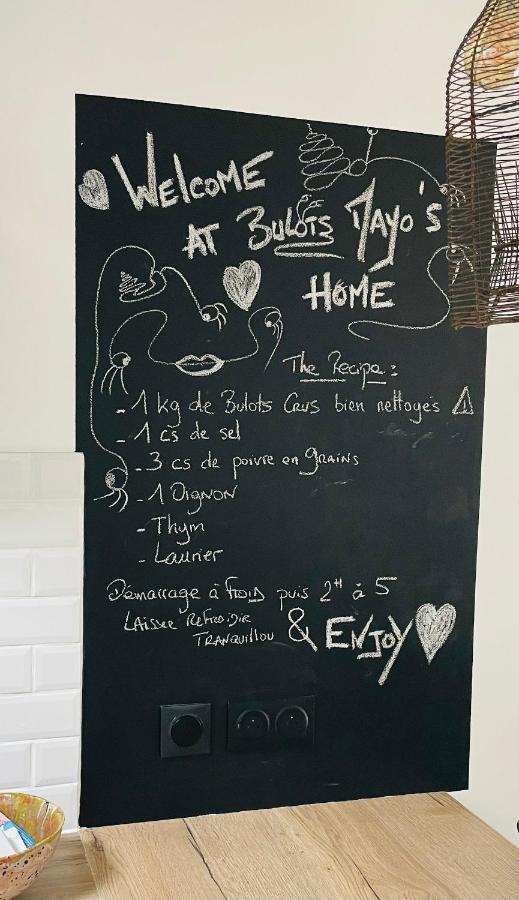 WELCOME
AT BULOTS MAYO'S
HOME
The Recipe :
- 1 kg de Bulots Crus bien nettoyés ⚠
- 1 cs de sel
- 3 cs de poivre en GRAINS
- 1 OIGNON
- Thym
- Laurier
Démarrage à FROID puis 2H à 5
LAISSER REFROIDIR
TRANQUILLOU & ENJOY